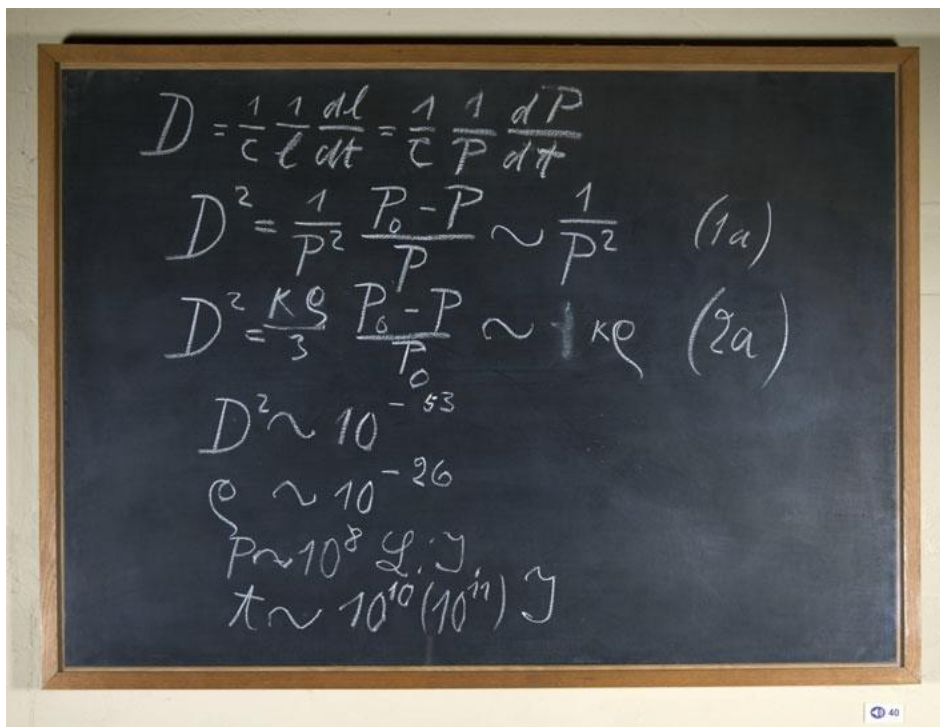 D = 1/c 1/l dl/dt = 1/c 1/P dP/dt
D² = 1/P² (P₀ - P)/P ~ 1/P² (1a)
D² = κρ/3 (P₀ - P)/P₀ ~ κρ (2a)
D² ~ 10⁻⁵³
ρ ~ 10⁻²⁶
P ~ 10⁸ L.J
t ~ 10¹⁰ (10¹¹) J
40